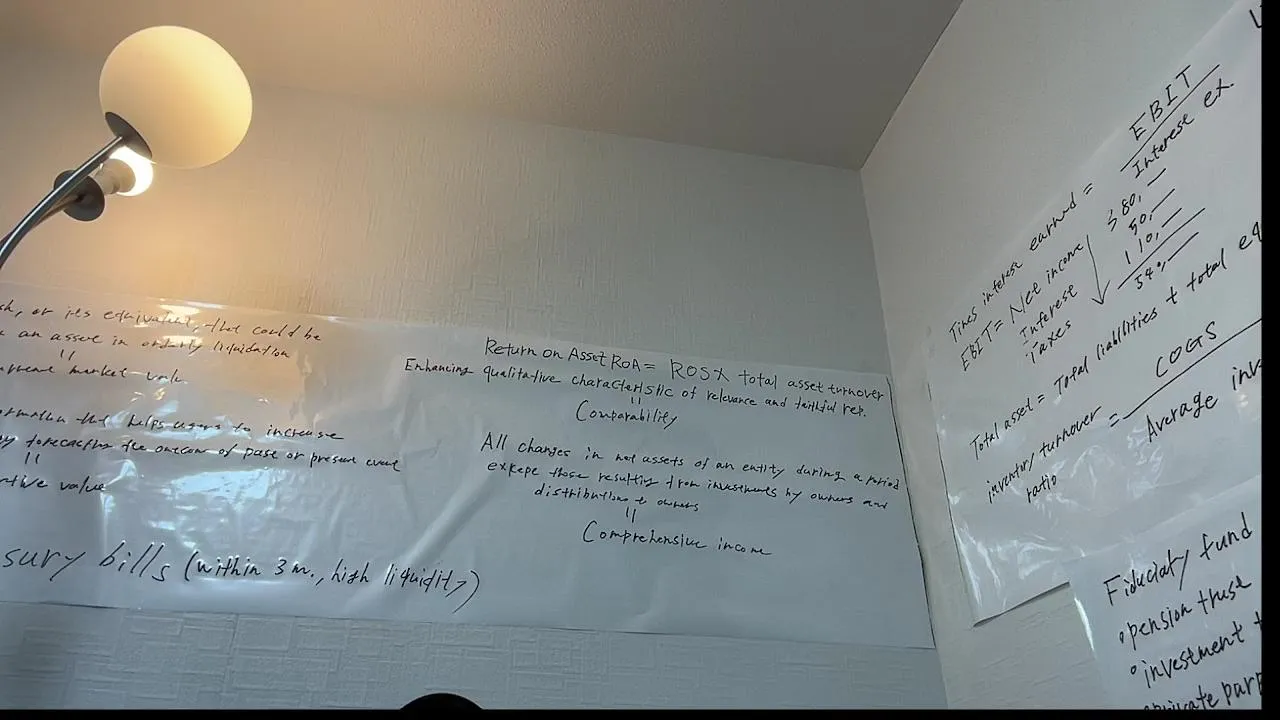 or its equivalent, that could be
an asset in orderly liquidation
〃
market valu
that helps users to increase
forecasting the outcome of past or present event
〃
tive value
sury bills (within 3m., high liquidity)
Return on Asset ROA = ROS X total asset turnover
Enhancing qualitative characteristic of relevance and faithful rep.
〃
Comparability
All changes in net assets of an entity during a period
except those resulting from investments by owners and
distributions to owners
〃
Comprehensive income
Times interest earned = EBIT
Interest ex.
EBIT = Net income 380,-
Interest 50,-
Taxes 110,-
540,-
Total asset = Total liabilities + total eq
inventory turnover ratio = COGS
Average inv
Fiduciary fund
• pension trust
• investment t
• private purp